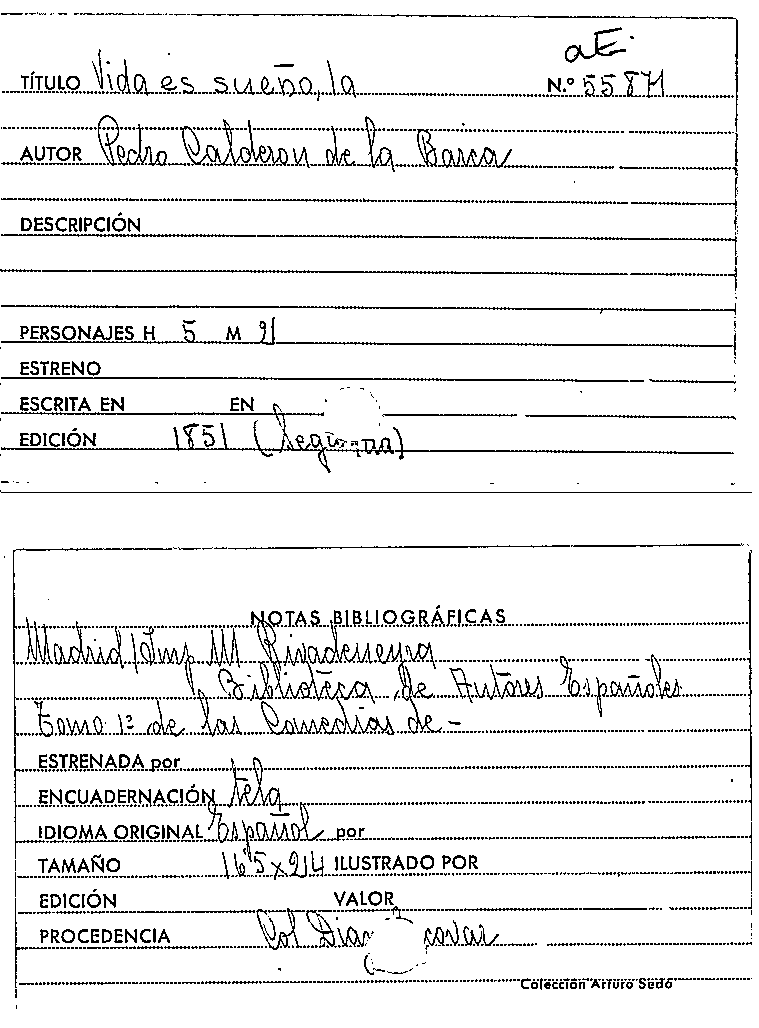 aE.
TÍTULO Vida es sueño, la N.º 55871
AUTOR Pedro Calderon de la Barca
DESCRIPCIÓN
PERSONAJES H 5 M 2
ESTRENO
ESCRITA EN EN
EDICIÓN 1851 (Segunda)
NOTAS BIBLIOGRÁFICAS
Madrid/Imp M Rivadeneyra
Biblioteca de Autores Españoles
Tomo 1º de las Comedias de -
ESTRENADA por
ENCUADERNACIÓN tela
IDIOMA ORIGINAL Español por
TAMAÑO 16'5 x 24 ILUSTRADO POR
EDICIÓN VALOR
PROCEDENCIA Col
Colección Arturo Sedó